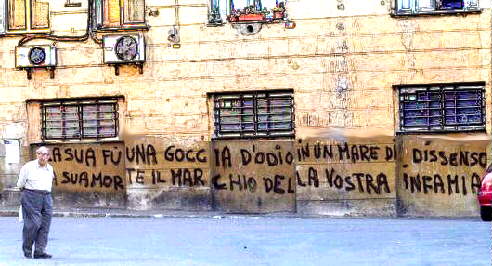 LA SUA FÙ UNA GOCCIA D'ODIO IN UN MARE DI DISSENSO
LA SUA MORTE IL MARCHIO DELLA VOSTRA INFAMIA